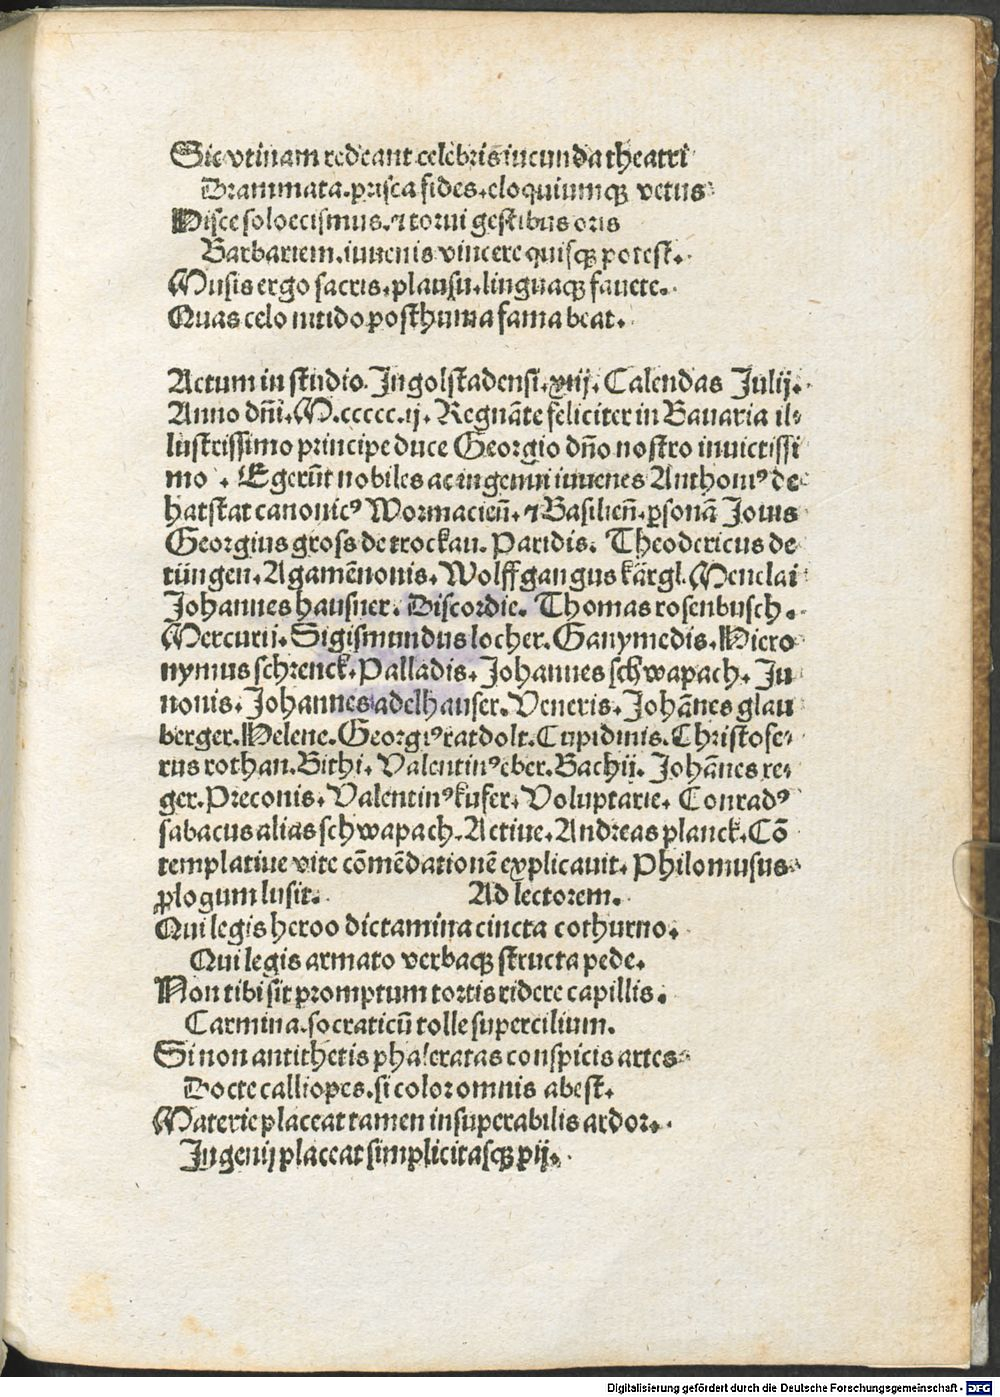 Sic vtinam redeant celebris iucunda theatri
Drammata. prisca fides. eloquiumqꝫ vetus
Hisce soloecismus. ⁊ torui gestibus oris
Barbariem. iuuenis vincere quisqꝫ potest.
Musis ergo sacris. plausu. linguaqꝫ fauete.
Quas celo nitido posthuma fama beat.
Actum in studio. Ingolstadensi. xiij. Calendas Julij.
Anno dñi. M.ccccc.ij. Regnāte feliciter in Bauaria il⸗
lustrissimo principe duce Georgio dño nostro inuictissi
mo . Egerūt nobiles ac ingenui iuuenes Anthoniꝰ de
hatstat canonicꝰ Wormacieñ. ⁊ Basilieñ. ꝑsonā Jouis
Georgius gross de trockau. Paridis. Theodericus de
tüngen. Agamēnonis. Wolffgangus kärgl. Menelai
Johannes hausner. Discordie. Thomas rosenbusch.
Mercurii. Sigismundus locher. Ganymedis. Hiero
nymus schrenck. Palladis. Johannes schwapach. Ju
nonis. Johannes adelhauser. Veneris. Johānes glau
berger. Helene. Georgiꝰ ratdolt. Cupidinis. Christofe⸗
rus rothan. Bithi. Valentinꝰ eber. Bachij. Johānes re⸗
ger. Preconis. Valentinꝰ kufer. Voluptarie. Conradꝰ
sabacus alias schwapach. Actiue. Andreas planck. Cō
templatiue vite cōmēdationē explicauit. Philomusus
ꝓlogum lusit. Ad lectorem.
Qui legis heroo dictamina cincta cothurno.
Qui legis armato verbaqꝫ structa pede.
Non tibi sit promptum tortis ridere capillis.
Carmina. socraticū tolle supercilium.
Si non antithetis phaleratas conspicis artes
Docte calliopes. si color omnis abest.
Materie placeat tamen insuperabilis ardor.
Ingenij placeat simplicitasqꝫ pij.
Digitalisierung gefördert durch die Deutsche Forschungsgemeinschaft - DFG